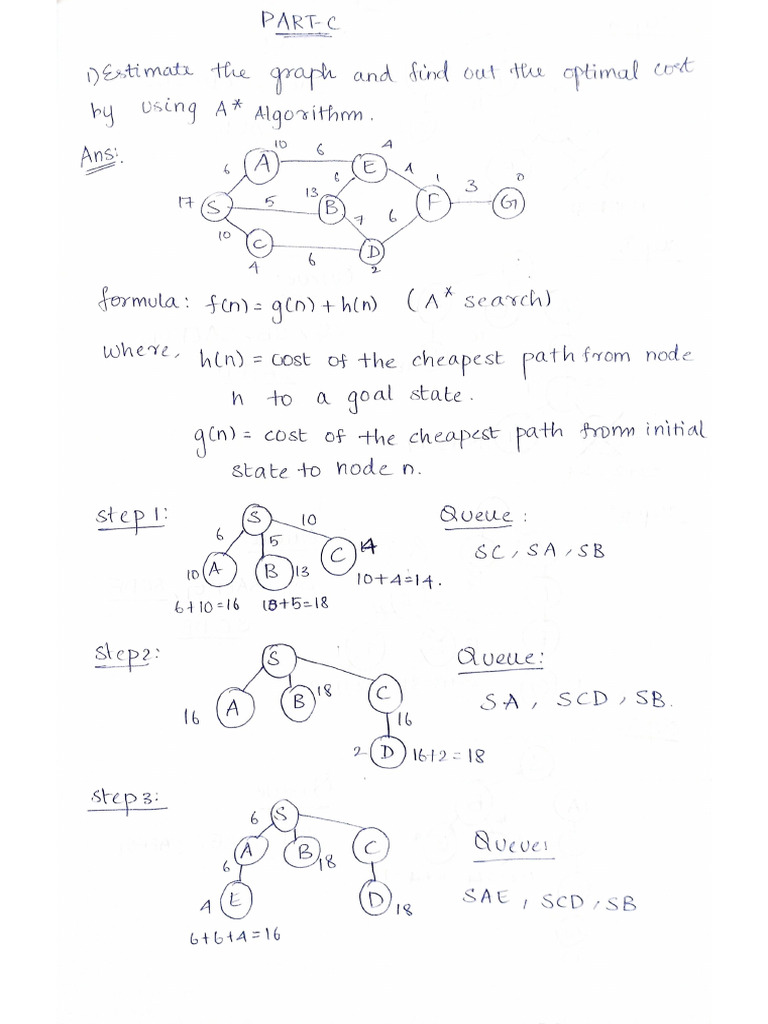 PART-C
1) Estimate the graph and find out the optimal cost
by using A* Algorithm.
Ans:
10 6 4
6 A E 4 1 3 0
17 S 5 13 B 6 F G
10 C 7 6
4 6 D
2
formula: f(n) = g(n) + h(n) (A* search)
where, h(n) = cost of the cheapest path from node
n to a goal state.
g(n) = cost of the cheapest path from initial
state to node n.
Step 1: S 10 Queue:
6 5 C 14 SC, SA, SB
10 A B 13 10+4=14.
6+10=16 13+5=18
Step2: S Queue:
16 A B 18 C SA, SCD, SB.
16
2 D 16+2=18
Step 3:
6 S Queue:
A B 18 C
6
4 E D 18 SAE, SCD, SB
6+6+4=16